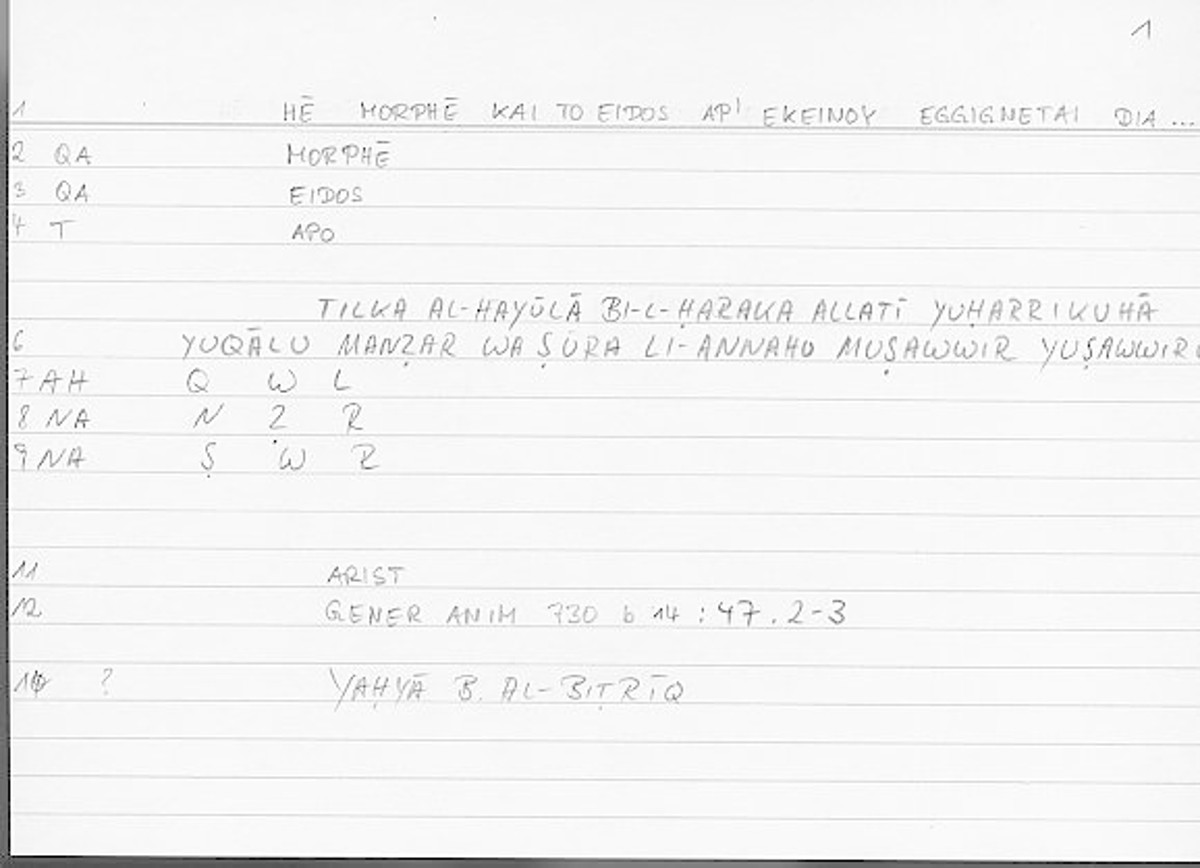 1
1 HĒ MORPHĒ KAI TO EIDOS AP' EKEINOY EGGIGNETAI DIA...
2 QA MORPHĒ
3 QA EIDOS
4 T APO
TILKA AL-HAYŪLĀ BI-L-ḤARAKA ALLATĪ YUḤARRIKUHĀ
6 YUQĀLU MANẒAR WA ṢŪRA LI-ANNAHU MUṢAWWIR YUṢAWWIRU
7 AH Q W L
8 NA N Ẓ R
9 NA Ṣ W R
11 ARIST
12 GENER ANIM 730 b 14 : 47.2-3
10 ? YAḤYĀ B. AL-BIṬRĪQ